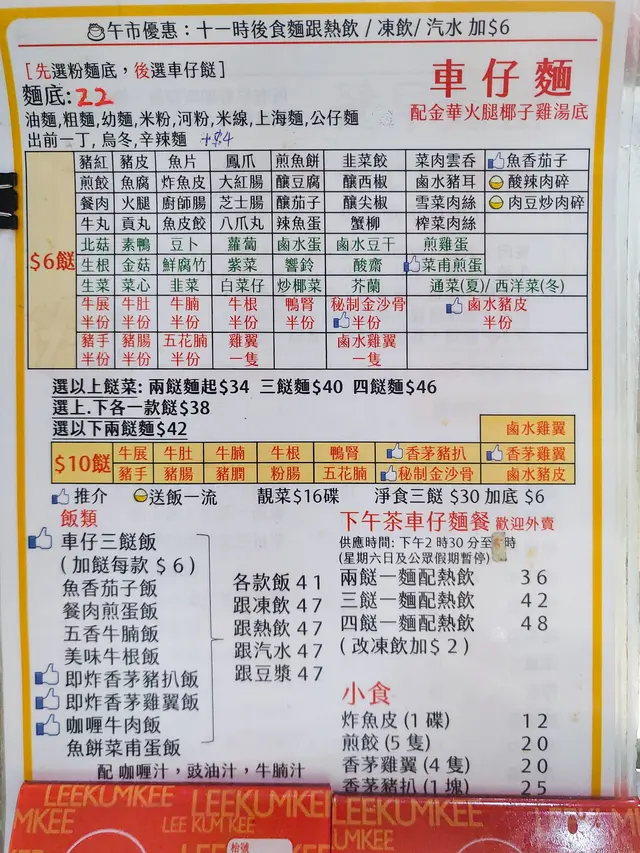 午市優惠：十一時後食麵跟熱飲 / 凍飲/ 汽水 加$6
[先選粉麵底，後選車仔餸]
車仔麵
麵底:22
配金華火腿椰子雞湯底
油麵,粗麵,幼麵,米粉,河粉,米線,上海麵,公仔麵
出前一丁, 烏冬,辛辣麵 +$4
$6餸
豬紅 豬皮 魚片 鳳爪 煎魚餅 韭菜餃 菜肉雲吞 魚香茄子
煎餃 魚腐 炸魚皮 大紅腸 釀豆腐 釀西椒 鹵水豬耳 酸辣肉碎
餐肉 火腿 廚師腸 芝士腸 釀茄子 釀尖椒 雪菜肉絲 肉豆炒肉碎
牛丸 貢丸 魚皮餃 八爪丸 辣魚蛋 蟹柳 榨菜肉絲
北菇 素鴨 豆卜 蘿蔔 鹵水蛋 鹵水豆干 煎雞蛋
生根 金菇 鮮腐竹 紫菜 響鈴 酸齋 菜甫煎蛋
生菜 菜心 韭菜 白菜仔 炒椰菜 芥蘭 通菜(夏)/ 西洋菜(冬)
牛展 牛肚 牛腩 牛根 鴨腎 秘制金沙骨 鹵水豬皮
半份 半份 半份 半份 半份 半份 半份
豬手 豬腸 五花腩 雞翼 鹵水雞翼
半份 半份 半份 一隻 一隻
選以上餸菜: 兩餸麵起$34 三餸麵$40 四餸麵$46
選上.下各一款餸$38
選以下兩餸麵$42
鹵水雞翼
$10餸
牛展 牛肚 牛腩 牛根 鴨腎 香茅豬扒 香茅雞翼
豬手 豬腸 豬膶 粉腸 五花腩 秘制金沙骨 鹵水豬皮
推介 送飯一流 靚菜$16碟 淨食三餸 $30 加底 $6
飯類
車仔三餸飯
(加餸每款 $6)
魚香茄子飯
餐肉煎蛋飯
五香牛腩飯
美味牛根飯
即炸香茅豬扒飯
即炸香茅雞翼飯
咖喱牛肉飯
魚餅菜甫蛋飯
配 咖喱汁，豉油汁，牛腩汁
各款飯 41
跟凍飲 47
跟熱飲 47
跟汽水 47
跟豆漿 47
下午茶車仔麵餐 歡迎外賣
供應時間: 下午2 時30 分至 時
(星期六日及公眾假期暫停)
兩餸一麵配熱飲 36
三餸一麵配熱飲 42
四餸一麵配熱飲 48
(改凍飲加$ 2)
小食
炸魚皮 (1 碟) 12
煎餃 (5 隻) 20
香茅雞翼 (4 隻) 20
香茅豬扒 (1 塊) 25
LEEKUMKEE LEEKUMKEE LEEKUMKEE
MKEE LEE KUM KEE UMKEE